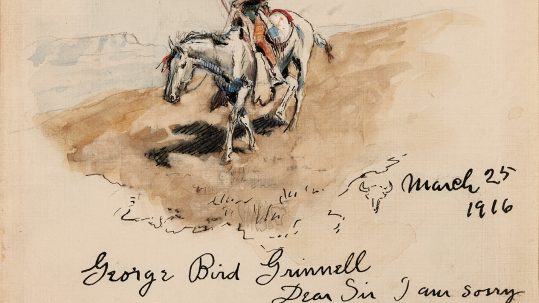 March 25
1916
George Bird Grinnell
Dear Sir I am sorry